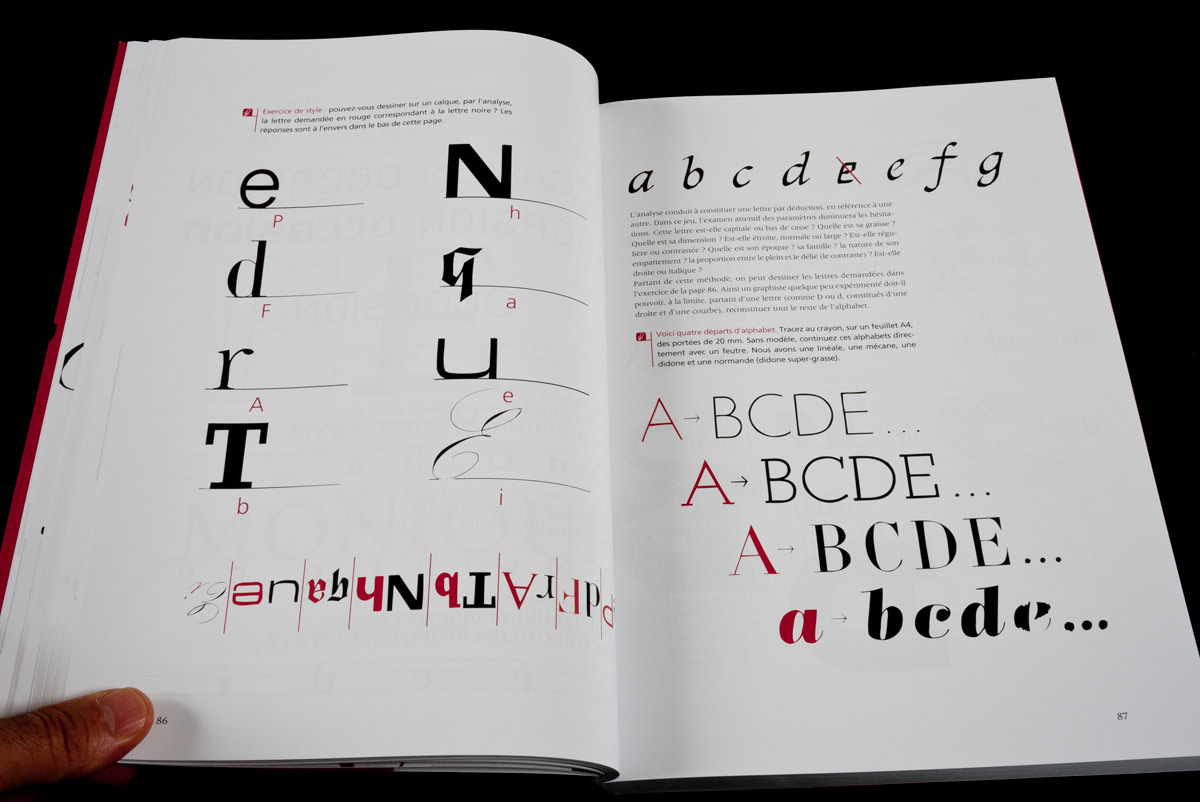 Exercice de style : pouvez-vous dessiner sur un calque, par l'analyse,
la lettre demandée en rouge correspondant à la lettre noire ? Les
réponses sont à l'envers dans le bas de cette page.
e
P
N
h
d
F
q
a
r
A
u
e
T
b
E
i
Pd FrA Tb Nh qa ue Ei
86
a b c d e e f g
L'analyse conduit à constituer une lettre par déduction, en référence à une
autre. Dans ce jeu, l'examen attentif des paramètres diminuera les hésita-
tions. Cette lettre est-elle capitale ou bas de casse ? Quelle est sa graisse ?
Quelle est sa dimension ? Est-elle étroite, normale ou large ? Est-elle régu-
lière ou contrastée ? Quelle est son époque ? sa famille ? la nature de son
empattement ? la proportion entre le plein et le délié (le contraste) ? Est-elle
droite ou italique ?
Partant de cette méthode, on peut dessiner les lettres demandées dans
l'exercice de la page 86. Ainsi un graphiste quelque peu expérimenté doit-il
pouvoir, à la limite, partant d'une lettre (comme D ou d, constitués d'une
droite et d'une courbe), reconstituer tout le reste de l'alphabet.
Voici quatre départs d'alphabet. Tracez au crayon, sur un feuillet A4,
des portées de 20 mm. Sans modèle, continuez ces alphabets direc-
tement avec un feutre. Nous avons une linéale, une mécane, une
didone et une normande (didone super-grasse).
A → BCDE ...
A → BCDE ...
A → BCDE ...
a → bcde ...
87